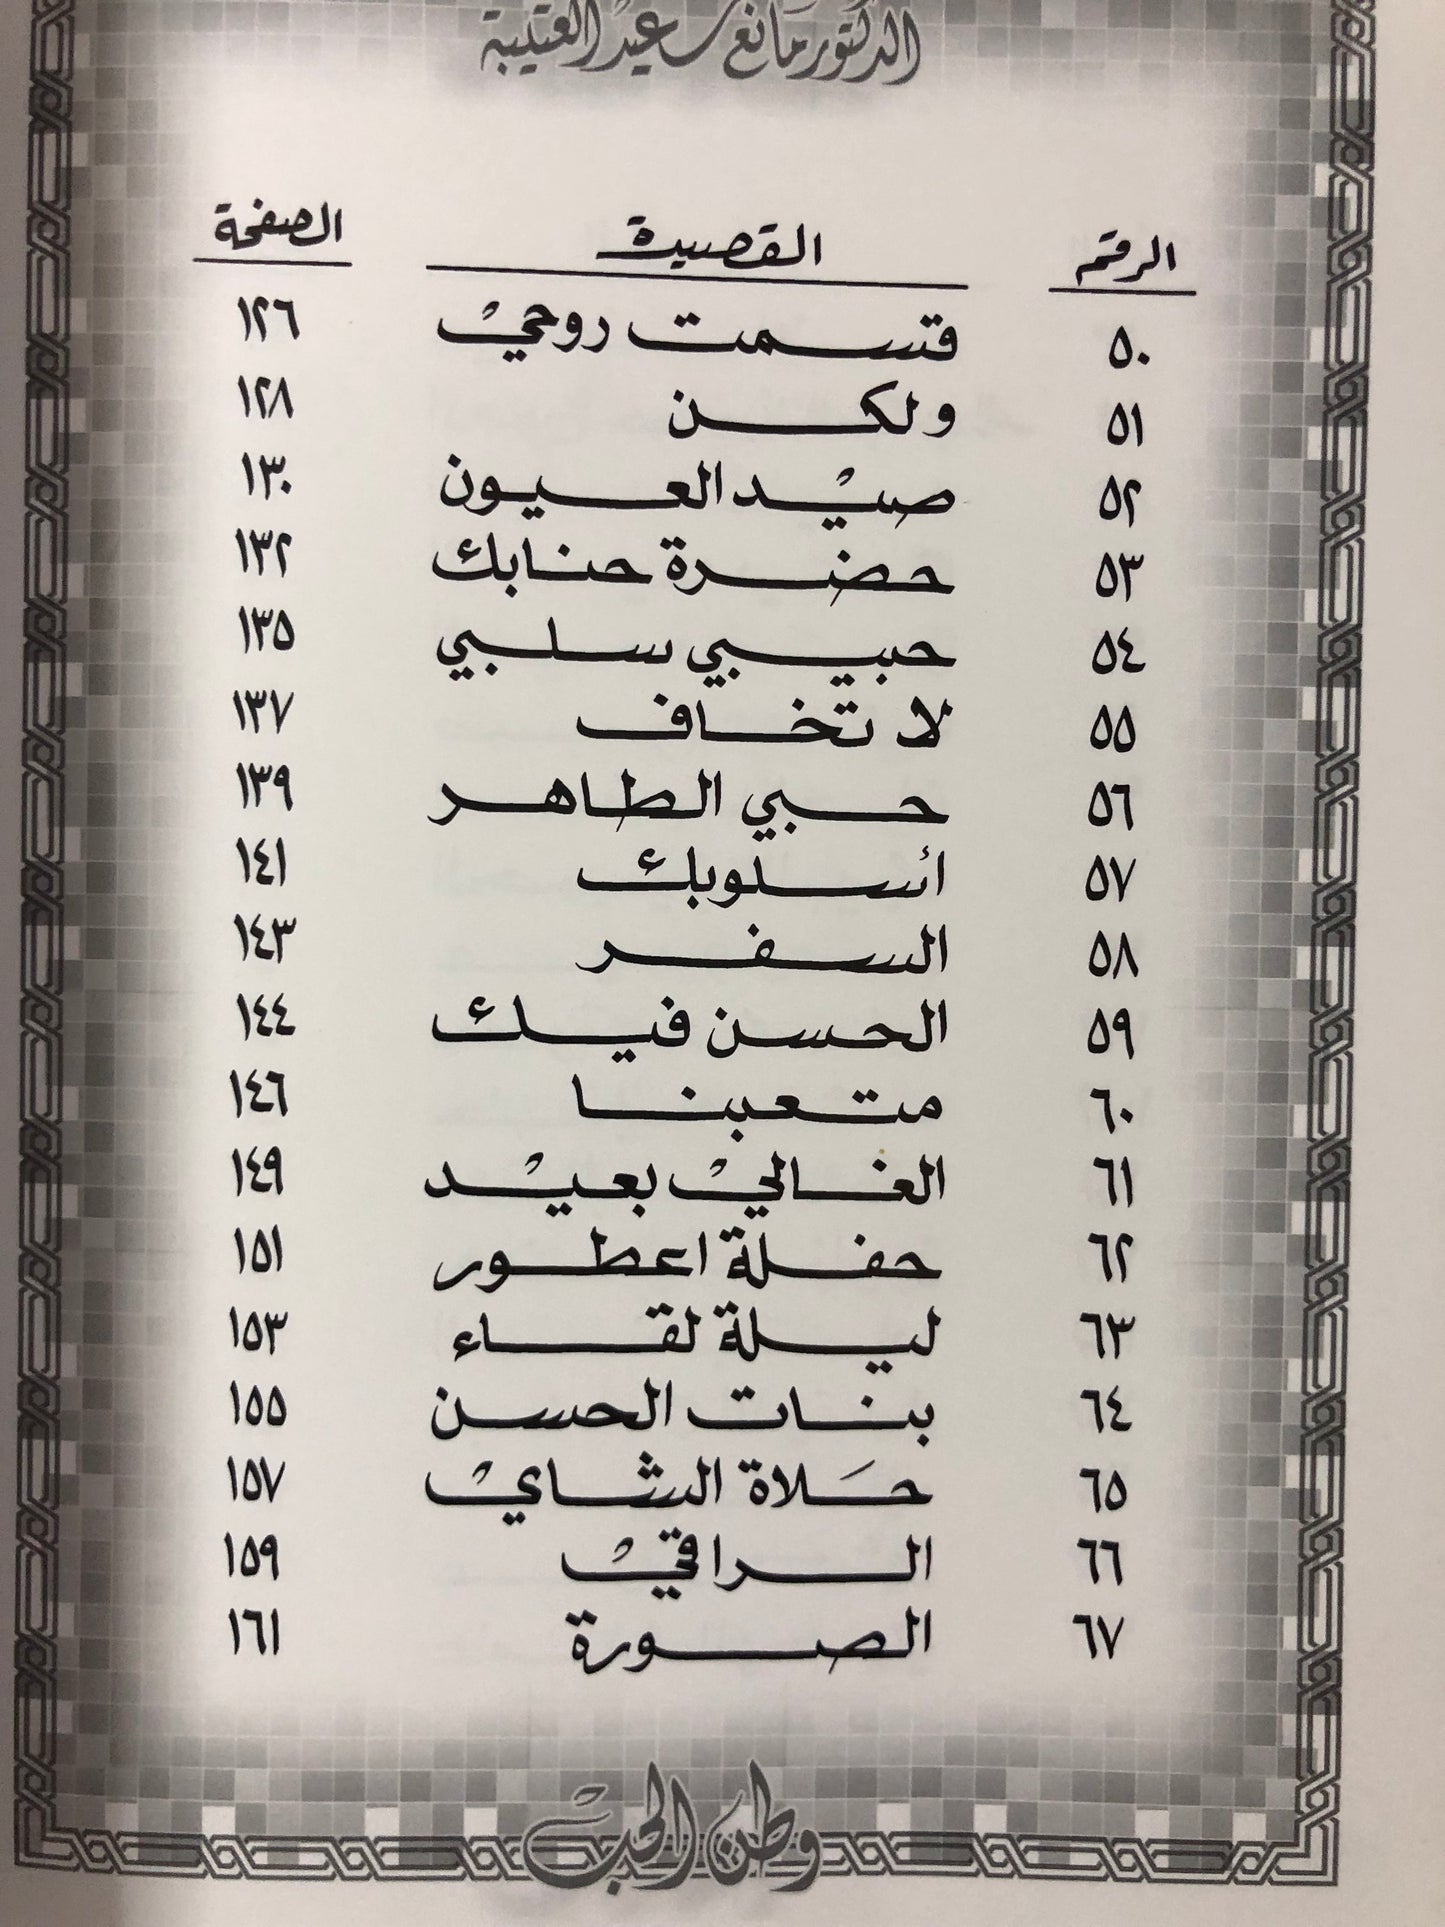 الدكتور مانع سعيد العتيبة
الرقم القصيدة الصفحة
٥٠ قسمت روحيْ ١٢٦
٥١ ولكن ١٢٨
٥٢ صيْد العيون ١٣٠
٥٣ حضرة حنابك ١٣٢
٥٤ حبيبي سلبي ١٣٥
٥٥ لا تخاف ١٣٧
٥٦ حبي الطاهر ١٣٩
٥٧ أسلوبك ١٤١
٥٨ السفر ١٤٣
٥٩ الحسن فيك ١٤٤
٦٠ متعبنا ١٤٦
٦١ الغاليْ بعيْد ١٤٩
٦٢ حفلة اعطور ١٥١
٦٣ ليلة لقاء ١٥٣
٦٤ بنات الحسن ١٥٥
٦٥ حَلاة الشايْ ١٥٧
٦٦ الراقيْ ١٥٩
٦٧ الصورة ١٦١
وطن الحب